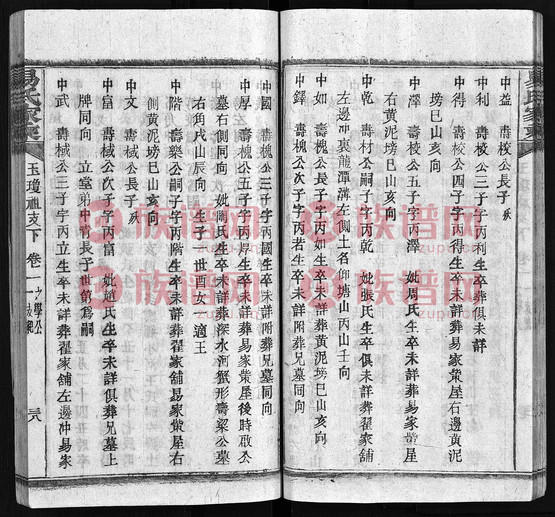 中益 壽梭公長子 殀
中利 壽梭公三子字丙利生卒葬俱未詳
中得 壽梭公四子字丙得生卒未詳葬易家䇶屋右邊黃泥
塝巳山亥向
中澤 壽梭公五子字丙澤 妣周氏生卒未詳葬易家䇶屋
右黃泥塝巳山亥向
中乾 壽材公嗣子字丙乾 妣張氏生卒俱未詳葬翟家舖
左邊沖裏龍潭溝左側土名仰塘山丙山壬向
中如 壽槐公長子字丙如生卒未詳葬黃泥塝巳山亥向
中鐸 壽槐公次子字丙若生卒未詳葬兄墓同向
中國 壽槐公三子字丙國生卒未詳附葬兄墓同向
中厚 壽槐公五子字丙厚生卒未詳葬易家䇶屋後時啟公
墓右側同向 妣謝氏生卒未詳葬深水河蟹形壽樑公墓
右角戌山辰向 生子一世酉女一適王
中階 壽樂公嗣子字丙階生卒未詳葬翟家舖易家䇶屋右
側黃泥塝巳山亥向
中文 壽棫公長子 殀
中富 壽棫公次子字丙富 妣趙氏生卒未詳俱葬兄墓上
牌同向 立堂弟中青長子世第為嗣
中武 壽棫公三子字丙立生卒未詳葬翟家舖左邊沖易家
易氏家乘
玉瓊祖支下 卷一
三八
族谱网